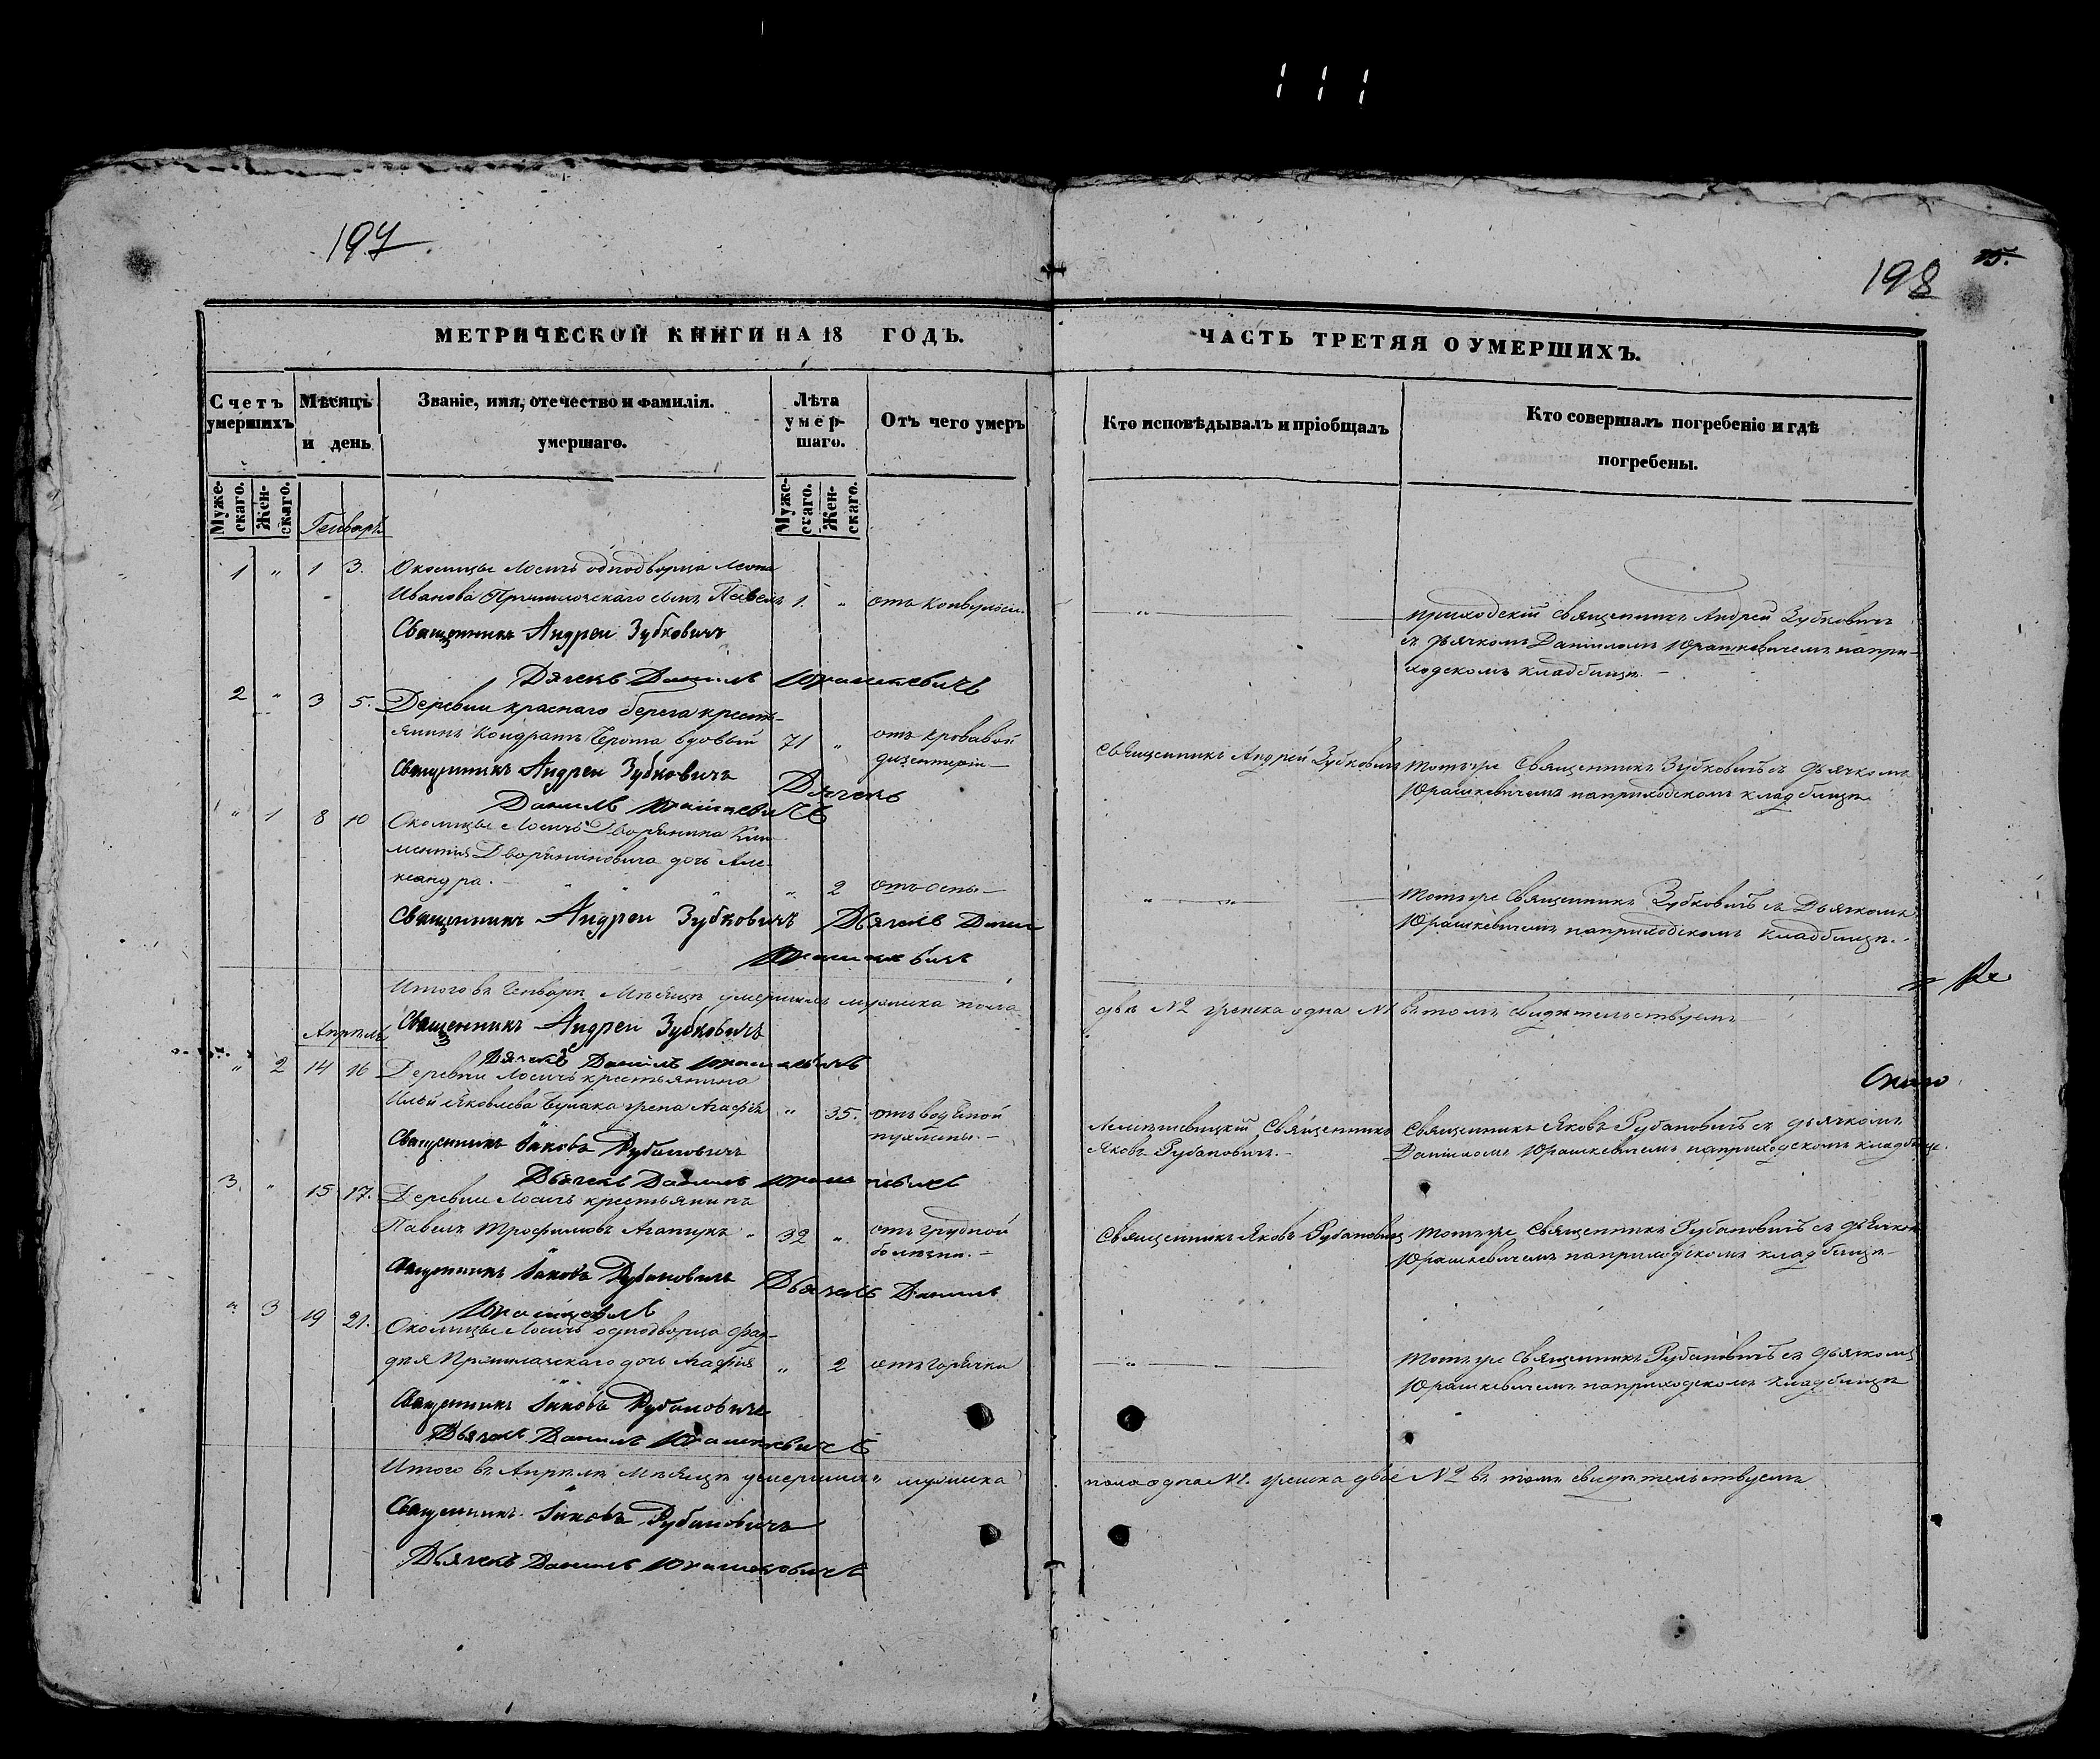 197
198
75.
МЕТРИЧЕСКОЙ КНИГИ НА 18 ГОДЪ.
ЧАСТЬ ТРЕТЯЯ О УМЕРШИХЪ.
Счетъ умершихъ
Мѣсяцъ и день
Званіе, имя, отечество и фамилія. умершаго.
Лѣта умершаго.
Отъ чего умеръ
Кто исповѣдывалъ и пріобщалъ
Кто совершалъ погребеніе и гдѣ погребены.
Мужескаго. Женскаго.
Мужескаго. Женскаго.
Генварь
1 " 1 3. Околицы Лосичъ однодворца
Иванова сынъ Павелъ 1. " отъ конвульсіи.
Священникъ Андрей Зубковичъ
Дячекъ Данилъ Юрашкевичъ
приходскій священникъ Андрей Зубковичъ
съ дьячкомъ Даніиломъ Юрашкевичемъ на при-
ходскомъ кладбищѣ.
2 " 3 5. Деревни Краснаго берега кресть-
янинъ Кондратъ вдовый 71 " отъ кровавой
дизентеріи
Священникъ Андрей Зубковичъ Дячекъ
Данилъ Юрашкевичъ
Священникъ Андрей Зубковичъ
тотъже Священникъ Зубковичъ съ дьячкомъ
Юрашкевичемъ на приходскомъ кладбищѣ
" 1 8 10 Околицы Лосичъ Дворянина Кли-
ментія дочь Але-
ксандра. " 2 отъ оспы
Священникъ Андрей Зубковичъ Дьячекъ Данил
Юрашкевичъ
тотъже Священникъ Зубковичъ съ Дьячкомъ
Юрашкевичемъ на приходскомъ кладбищѣ.
Итого въ Генварѣ Мѣсяцѣ умершихъ мужеска пола
два №2 женска одна №1 въ томъ свидѣтельствуемъ
Священникъ Андрей Зубковичъ
Дячекъ Данилъ Юрашкевичъ
Апрѣль
" 2 14 16 Деревни Лосичъ крестьянина
Ильи Яковлева жена Агафія " 35. отъ водяной
пухлины.
Священникъ Іаковъ Рубановичъ
Дьячекъ Данилъ Юрашкевичъ
Священникъ
Яковъ Рубановичъ.
Священникъ Яковъ Рубановичъ съ дьячкомъ
Даніиломъ Юрашкевичемъ на приходскомъ кладбище.
3. " 15 17. Деревни Лосичъ крестьянинъ
Павелъ Трофимовъ " 32 " отъ грудной
болѣзни.
Священникъ Іаковъ Рубановичъ Дьячекъ Данилъ
Юрашкевичъ
Священникъ Яковъ Рубановичъ
тотъже Священникъ Рубановичъ съ дьячком
Юрашкевичемъ на приходскомъ кладбищѣ
" 3 19 21. Околицы Лосичъ однодворца Фад-
дея дочь Агафія " 2 отъ горячки
Священникъ Іаковъ Рубановичъ
Дьячекъ Данилъ Юрашкевичъ
тотъже Священникъ Рубановичъ съ дьячкомъ
Юрашкевичемъ на приходскомъ кладбищѣ
Итого въ Апрѣлѣ Мѣсяцѣ умершихъ мужеска
пола одна №1. женска двое №2 въ томъ свидѣтельствуемъ
Священникъ Іаковъ Рубановичъ
Дьячекъ Данилъ Юрашкевичъ